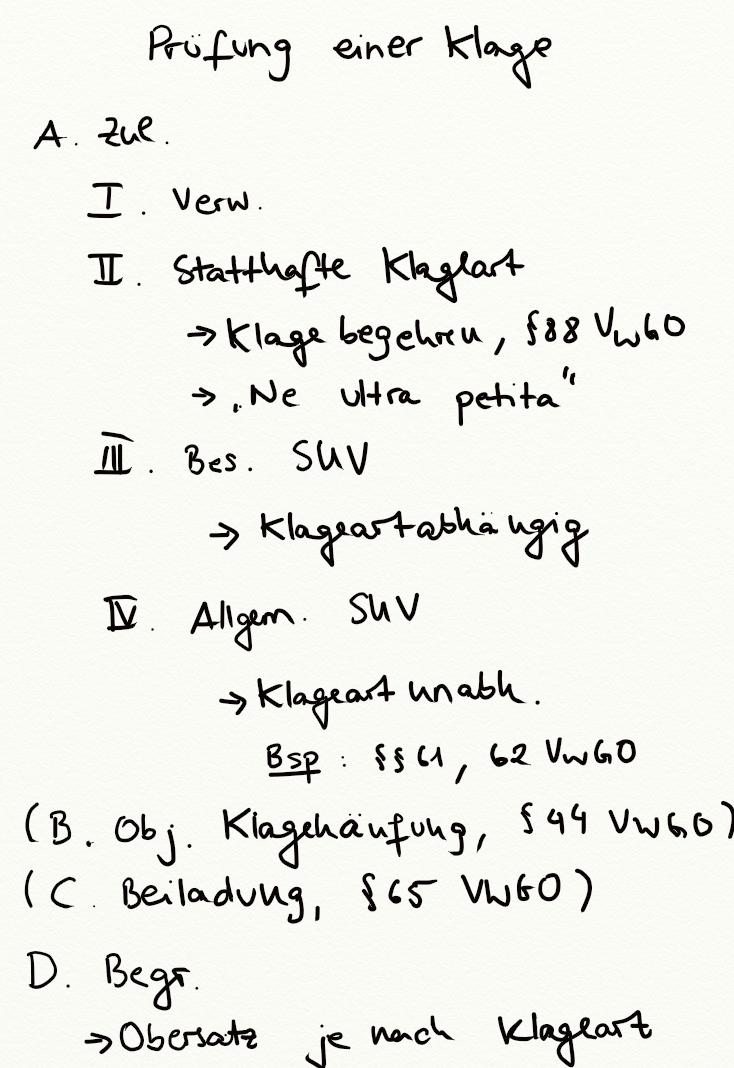 Prüfung einer Klage
A. Zul.
I. Verw.
II. Statthafte Klageart
→ Klagebegehren, §88 VwGO
→ „Ne ultra petita“
III. Bes. SUV
→ Klageartabhängig
IV. Allgem. SUV
→ Klageart unabh.
Bsp: §§ 61, 62 VwGO
(B. Obj. Klagehäufung, § 44 VwGO)
(C. Beiladung, §65 VwGO)
D. Begr.
→ Obersatz je nach Klageart